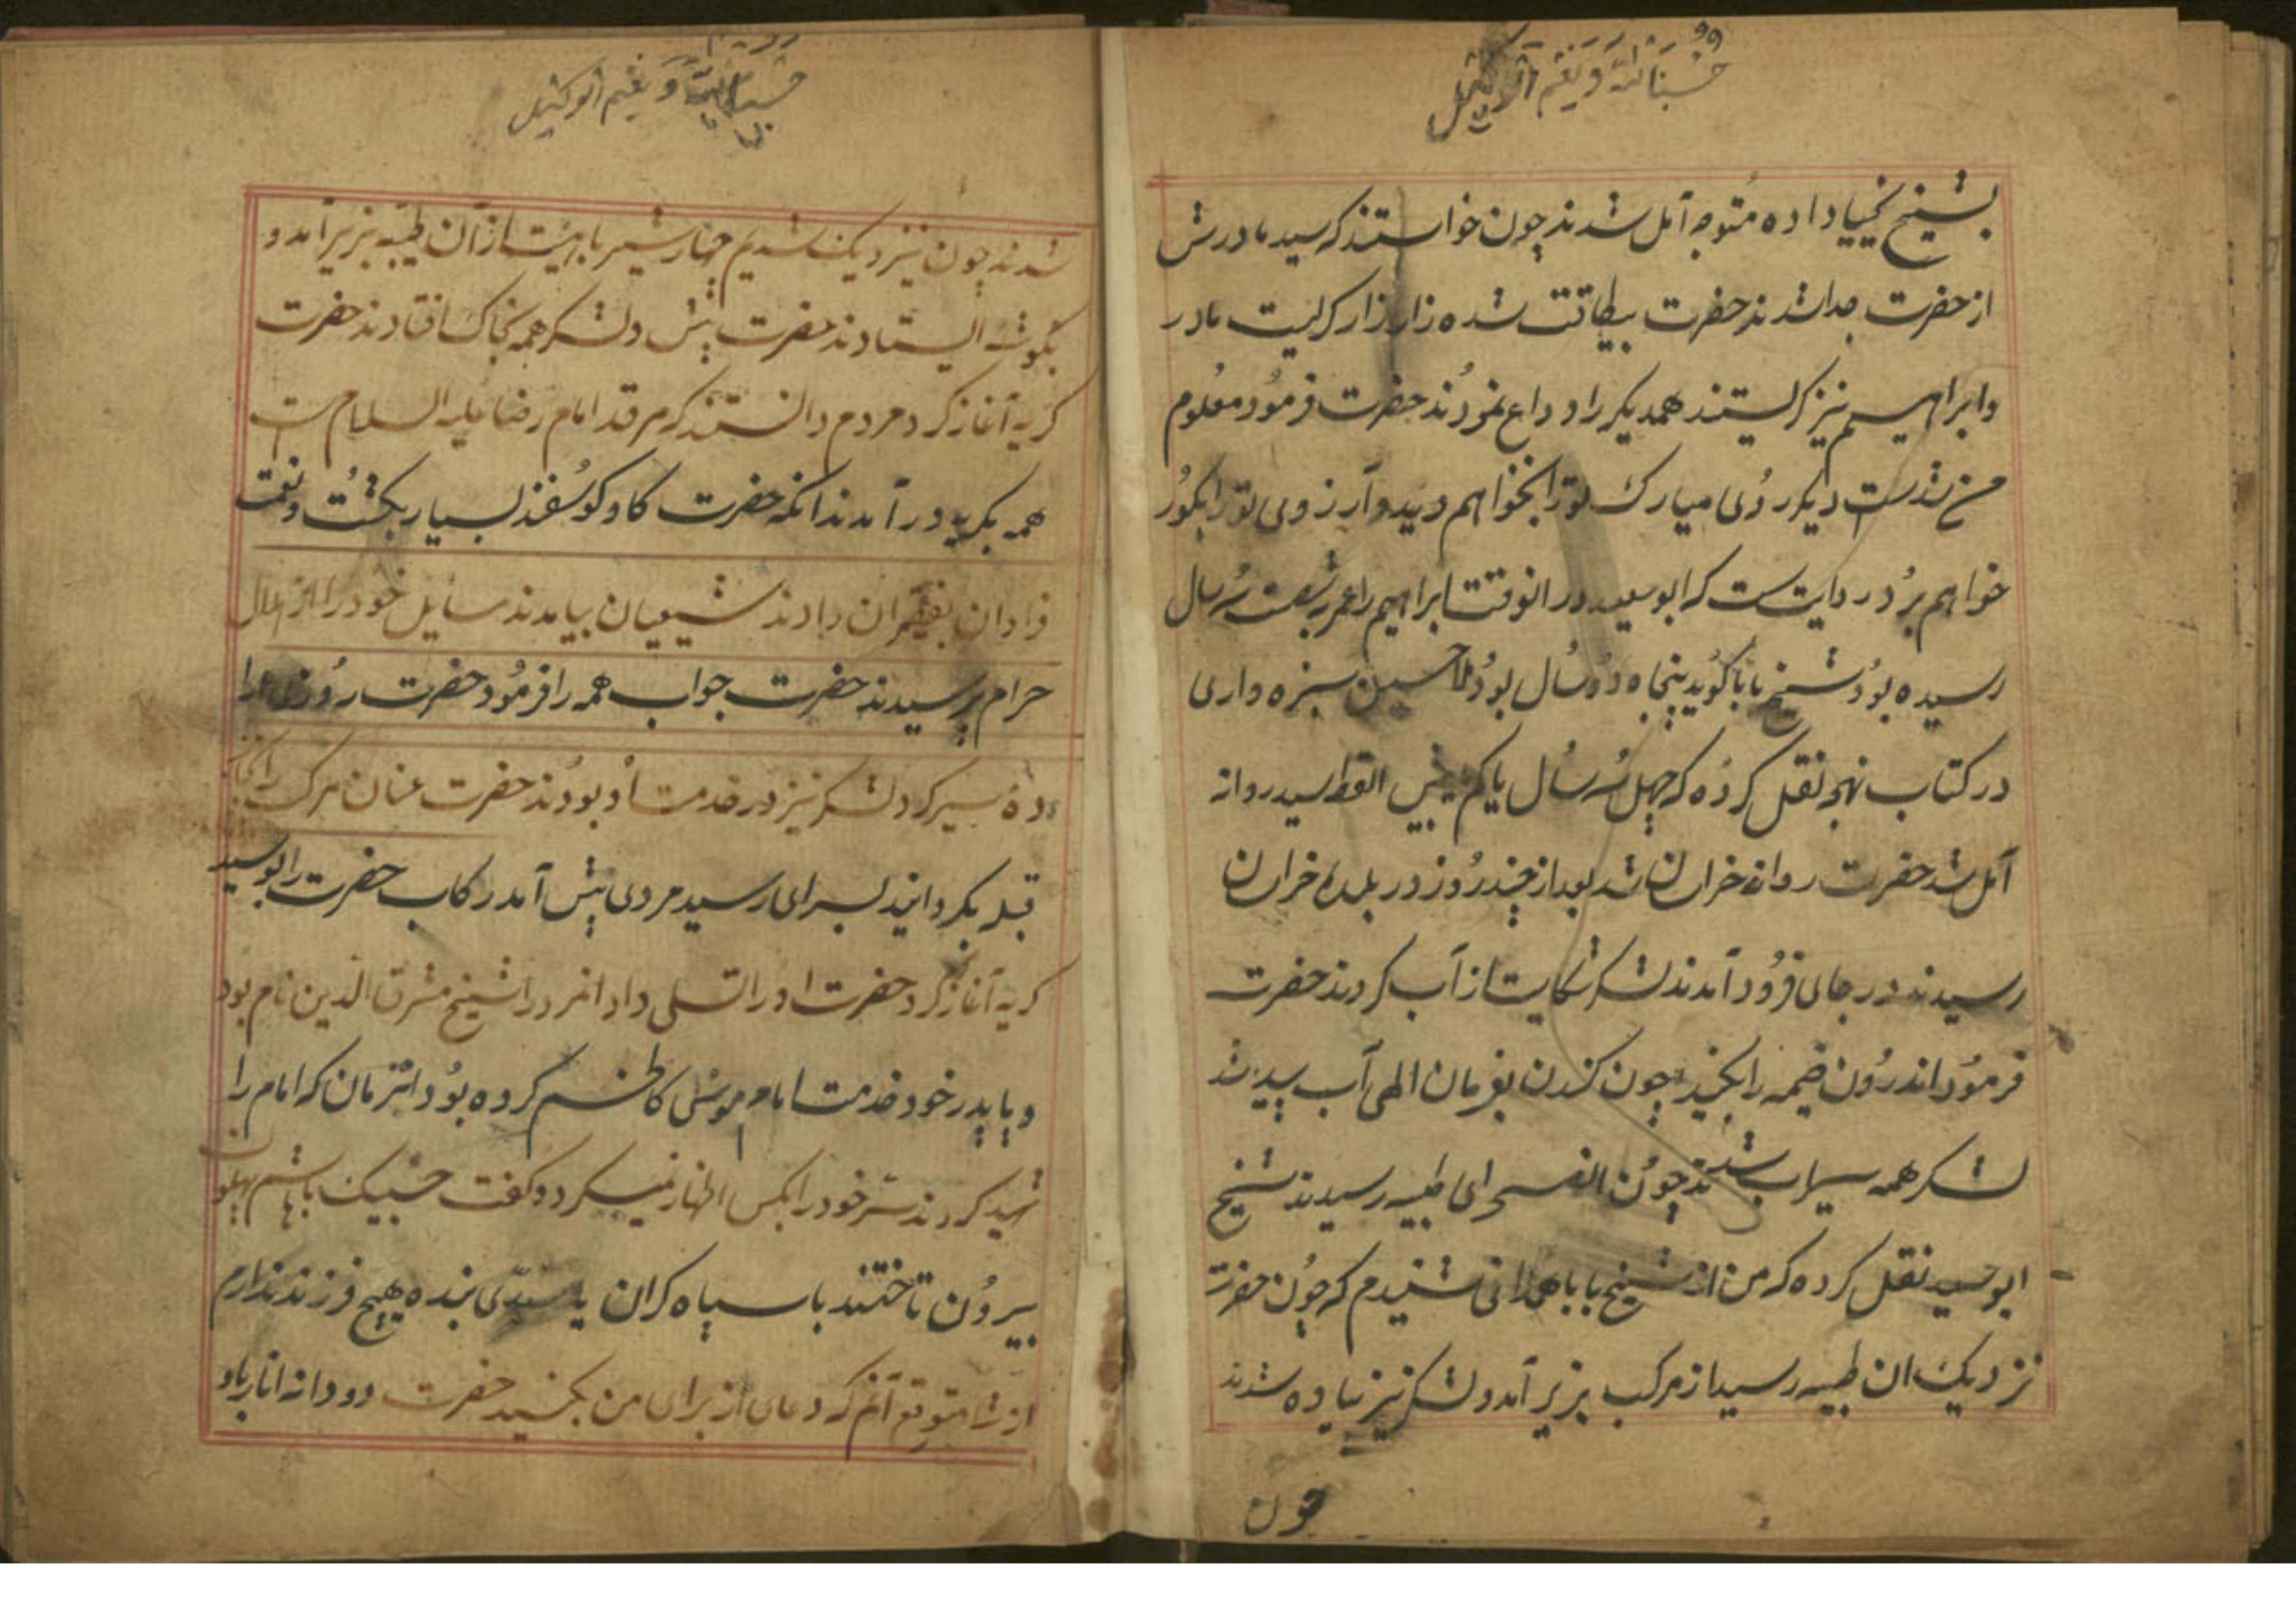 حسبنا الله و نعم الوکیل
بشیخ یحیا داده متوجه آمل شدند چون خواستند که سید مادرش
از حضرت جدا شدند حضرت بیطاقت شده زار زار کریست مادر
و ابراهیم نیز کریستند همدیکر را وداع نمودند حضرت فرمود معلوم
من شدست دیکر روی مبارک تو را نخواهم دید و آرزوی تو را بکور
خواهم برد روایتست که ابو سعید در انوقت ابراهیم را عمر بشصت سه سال
رسیده بود شیخ بابا کوید پنجاه دو سال بود ملا حسین سبزه واری
در کتاب نهج نقل کرده که چهل سه سال یا کم بیش القط سید روانه
آمل شد حضرت روانه خراسان شد بعد از چند روز در بلده خراسان
رسیدند در جای فرود آمدند لشکر شکایت از آب کردند حضرت
فرمود اندرون خیمه را بکنید چون کندن بفرمان الهی آب پدید شد
لشکر همه سیراب شدند چون از صحرای طیبه رسیدند شیخ
ابو سعید نقل کرده که من از شیخ بابا همدانی شنیدم که چون حضرت
نزدیک ان طیبه رسید از مرکب بزیر آمد و لشکر نیز پیاده شدند
چون
حسبنا الله و نعم الوکیل
شدند چون نزدیک شدیم چهار شیر با هیئت از آن طیبه بزیر آمد و
بکوشه ایستادند حضرت پیش و لشکر همه بخاک افتادند حضرت
کریه آغاز کرد مردم دانستند که مرقد امام رضا علیه السلام است
همه بکریه در آمدند انکه حضرت کاو کوسفند بسیار بکشت و نعمت
فراوان بفقیران دادند شیعیان بیامدند مسایل خود را از حلال
حرام پرسیدند حضرت جواب همه را فرمود حضرت روزی
سیر کرد لشکر نیز در خدمت او بودند حضرت عنان مرکب را
قبله بکردانید بسرای رسید مردی پیش آمد رکاب حضرت را بوسید
کریه آغاز کرد حضرت او را تسلی داد انمرد را شیخ مشرق الدین نام بود
و با پدر خود خدمت امام موسی کاظم کرده بود انزمان که امام را
شهید کردند سر خود را بکس اظهار نمیکرد و کفت
بیرون تاختند با سپاه کران یا سیدی بنده هیچ فرزند ندارم
از شما متوقع آنم که دعای از برای من بکنید حضرت دو دانه انار باو